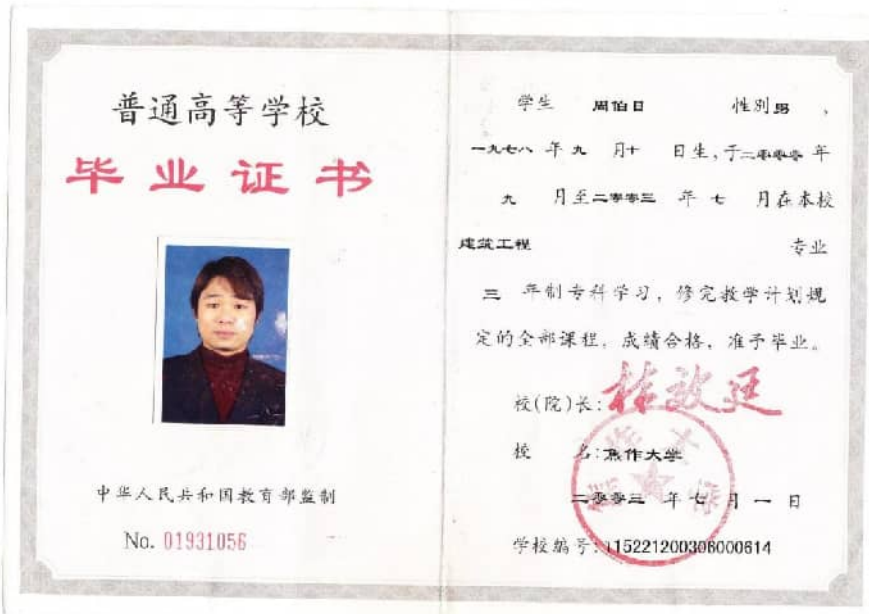 普通高等学校
毕业证书
中华人民共和国教育部监制
No. 01931056
学生 周伯日 性别男,
一九七八 年 九 月十 日生,于二零零零 年
九 月至二零零三 年 七 月在本校
建筑工程 专业
三 年制专科学习,修完教学计划规
定的全部课程,成绩合格,准予毕业。
校(院)长:
校 名:焦作大学
二零零三 年 七 月 一 日
学校编号:115221200306000614